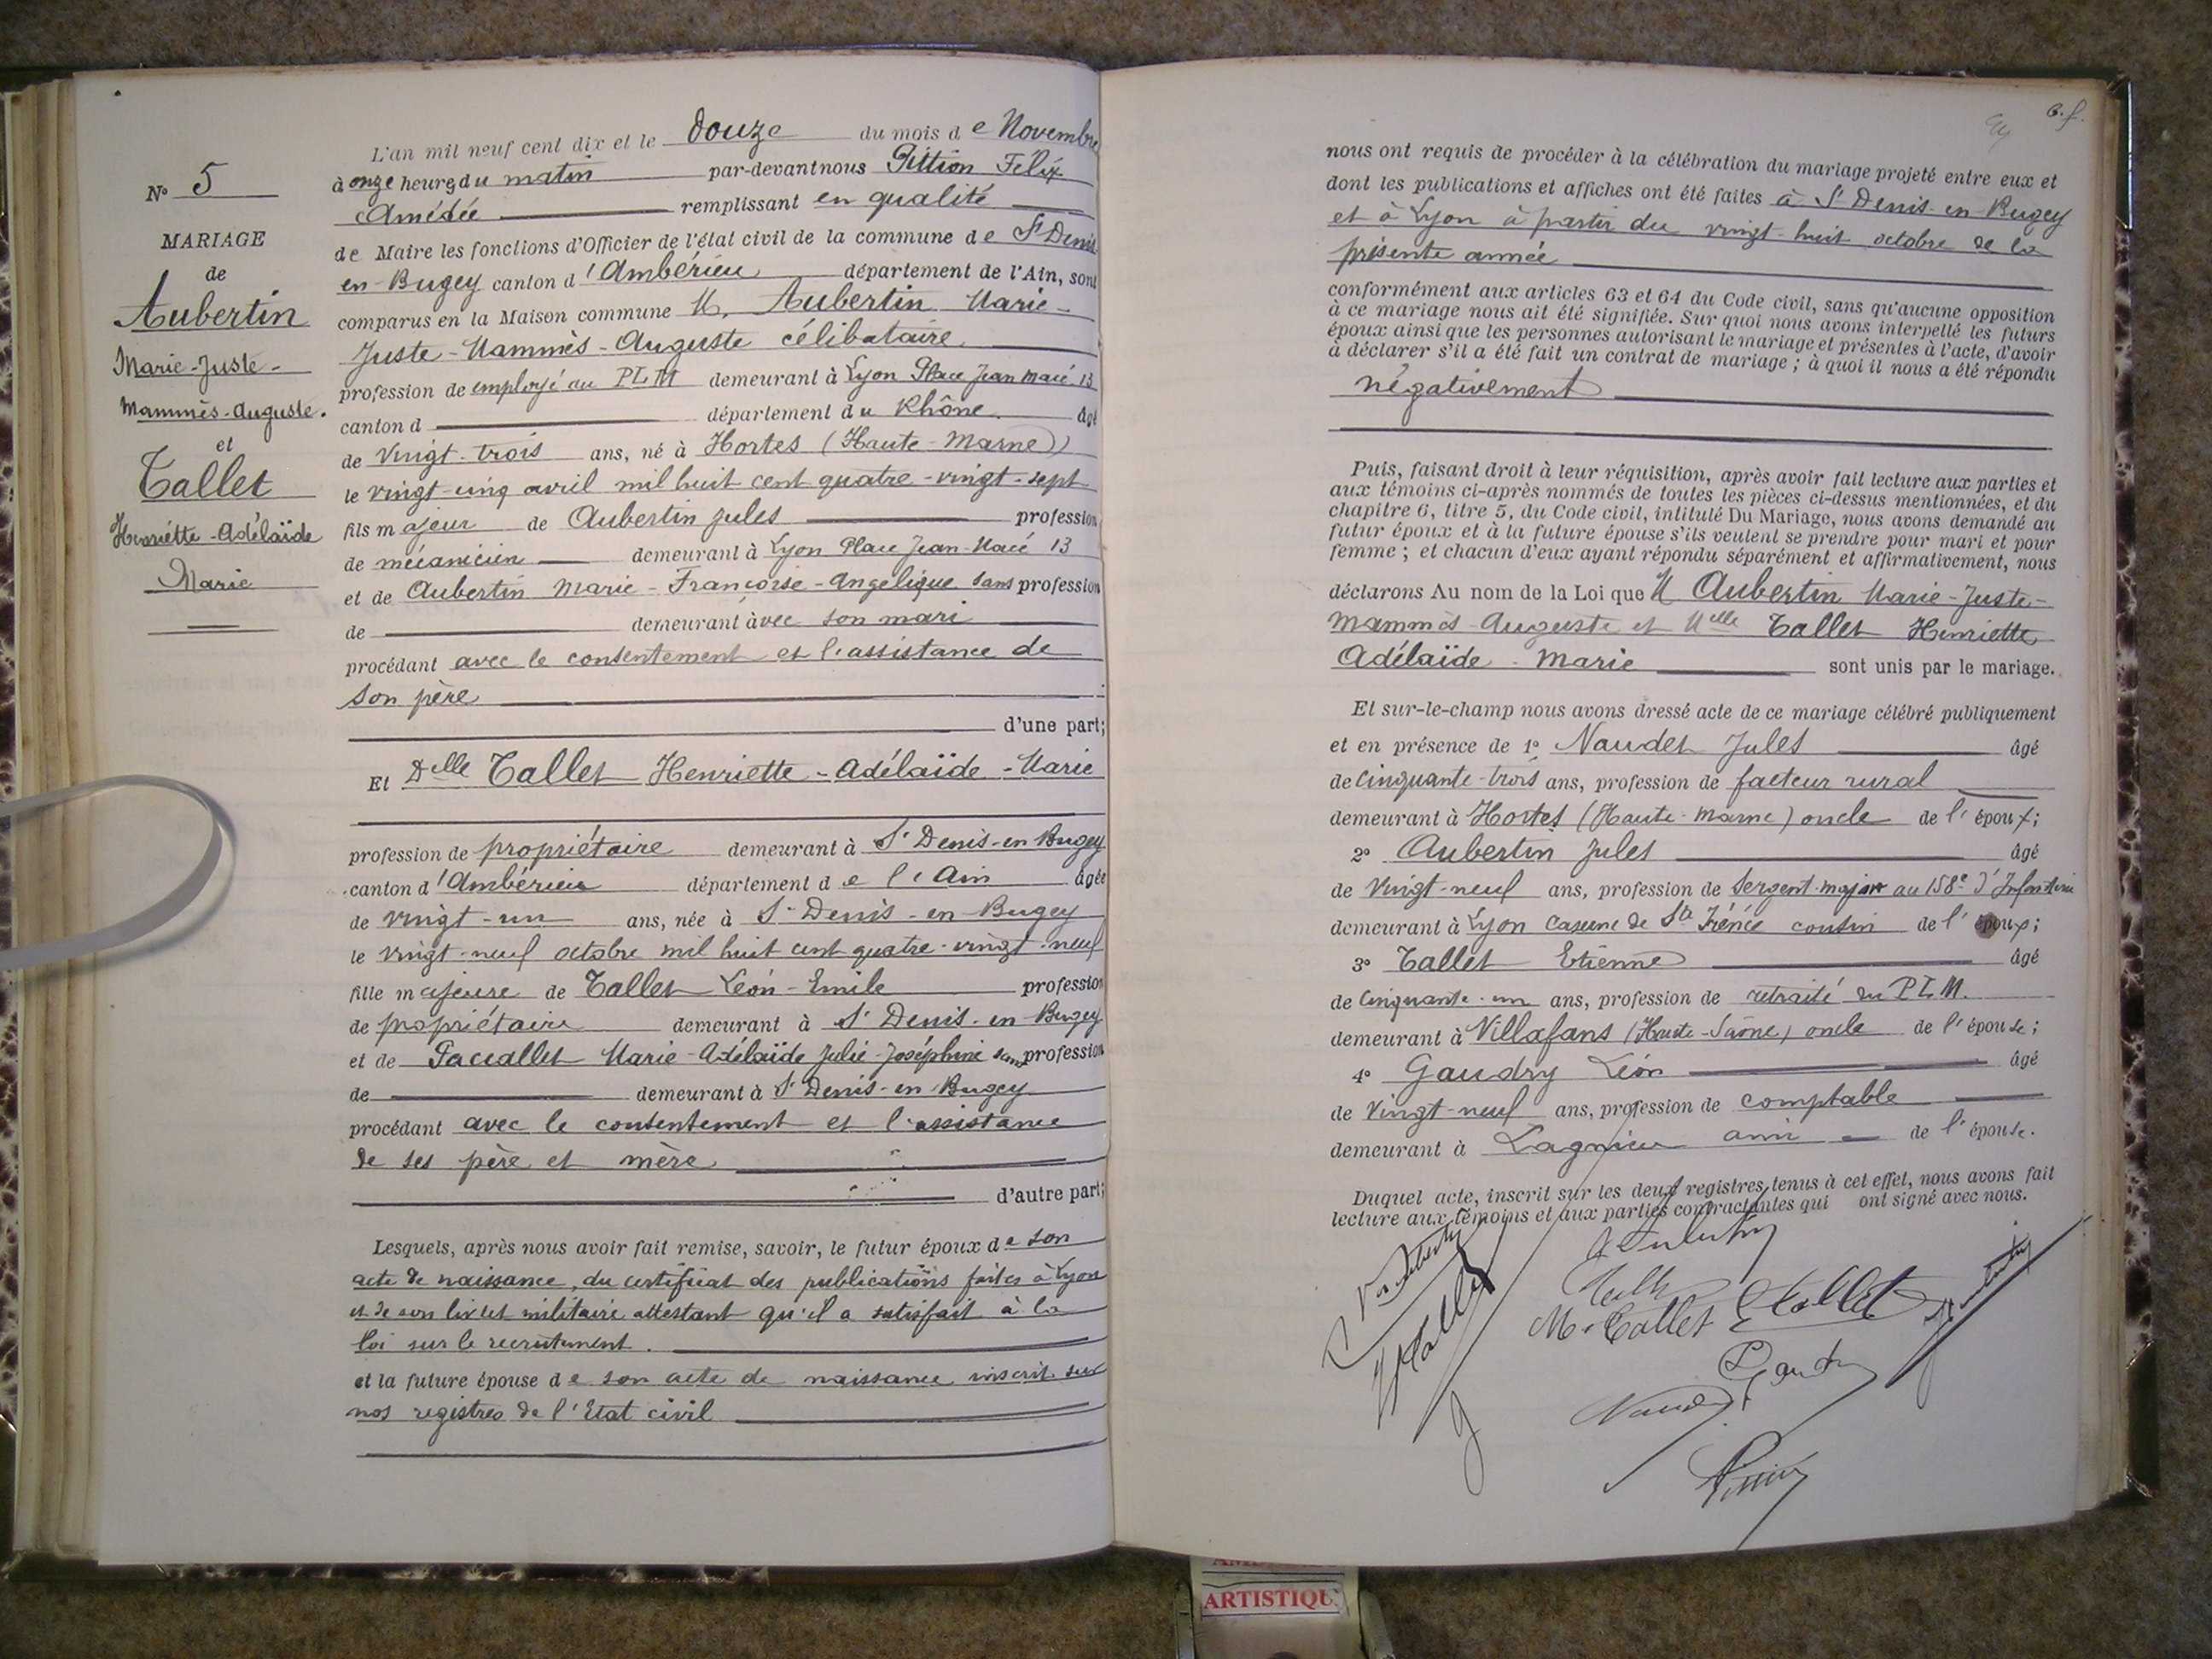 N° 5
MARIAGE
de
Aubertin
Marie-Juste-
Mammès-Auguste.
et
Tallet
Henriette-Adélaïde
Marie
L'an mil neuf cent dix et le douze du mois de Novembre
à onze heures du matin par-devant nous Pittion Félix
Amédée remplissant en qualité
de Maire les fonctions d'Officier de l'état civil de la commune de St Denis
en-Bugey canton d'Ambérieu département de l'Ain, sont
comparus en la Maison commune M. Aubertin Marie-
Juste-Mammès-Auguste célibataire
profession de employé au PLM demeurant à Lyon Place Jean Macé 13
canton d département du Rhône âgé
de vingt-trois ans, né à Hortes (Haute-Marne)
le vingt-cinq avril mil huit cent quatre-vingt-sept
fils majeur de Aubertin Jules profession
de mécanicien demeurant à Lyon Place Jean-Macé 13
et de Aubertin Marie-Françoise-Angelique sans profession
de demeurant avec son mari
procédant avec le consentement et l'assistance de
son père
d'une part;
Et Delle Tallet Henriette-Adélaïde-Marie
profession de propriétaire demeurant à St Denis-en-Bugey
canton d'Ambérieu département de l'Ain âgée
de vingt-un ans, née à St Denis-en-Bugey
le vingt-neuf octobre mil huit cent quatre-vingt-neuf
fille majeure de Tallet Léon-Emile profession
de propriétaire demeurant à St Denis-en-Bugey
et de Pacallet Marie-Adélaïde Julie-Joséphine sans profession
de demeurant à St Denis-en-Bugey
procédant avec le consentement et l'assistance
de ses père et mère
d'autre part;
Lesquels, après nous avoir fait remise, savoir, le futur époux de son
acte de naissance, du certificat des publications faites à Lyon
et de son livret militaire attestant qu'il a satisfait à la
loi sur le recrutement.
et la future épouse de son acte de naissance inscrit sur
nos registres de l'Etat civil
nous ont requis de procéder à la célébration du mariage projeté entre eux et
dont les publications et affiches ont été faites à St Denis-en-Bugey
et à Lyon à partir du vingt-huit octobre de la
présente année
conformément aux articles 63 et 64 du Code civil, sans qu'aucune opposition
à ce mariage nous ait été signifiée. Sur quoi nous avons interpellé les futurs
époux ainsi que les personnes autorisant le mariage et présentes à l'acte, d'avoir
à déclarer s'il a été fait un contrat de mariage; à quoi il nous a été répondu
négativement
Puis, faisant droit à leur réquisition, après avoir fait lecture aux parties et
aux témoins ci-après nommés de toutes les pièces ci-dessus mentionnées, et du
chapitre 6, titre 5, du Code civil, intitulé Du Mariage, nous avons demandé au
futur époux et à la future épouse s'ils veulent se prendre pour mari et pour
femme; et chacun d'eux ayant répondu séparément et affirmativement, nous
déclarons Au nom de la Loi que M Aubertin Marie-Juste-
Mammès-Auguste et Melle Tallet Henriette
Adélaïde-Marie sont unis par le mariage.
Et sur-le-champ nous avons dressé acte de ce mariage célébré publiquement
et en présence de 1° Naudet Jules âgé
de cinquante-trois ans, profession de facteur rural
demeurant à Hortes (Haute-Marne) oncle de l'époux;
2° Aubertin Jules âgé
de vingt-neuf ans, profession de sergent-major au 158e d'Infanterie
demeurant à Lyon caserne de St Irénée cousin de l'époux;
3° Tallet Etienne âgé
de cinquante-un ans, profession de retraité du PLM.
demeurant à Villafans (Haute-Saône) oncle de l'épouse;
4° Gaudry Léon âgé
de vingt-neuf ans, profession de comptable
demeurant à Lagnieu ami de l'épouse.
Duquel acte, inscrit sur les deux registres tenus à cet effet, nous avons fait
lecture aux témoins et aux parties contractantes qui ont signé avec nous.
M. Tallet E Tallet
ARTISTIQU